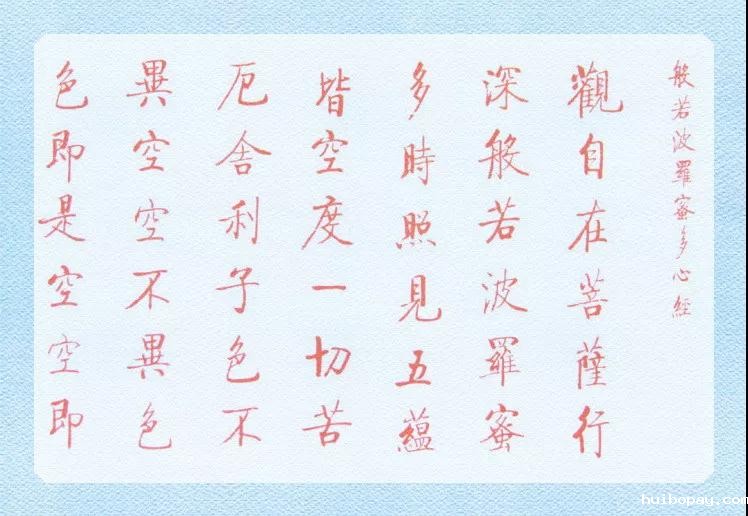 般若波羅蜜多心經
觀自在菩薩行
深般若波羅蜜
多時照見五蘊
皆空度一切苦
厄舍利子色不
異空空不異色
色即是空空即
huibopay.com